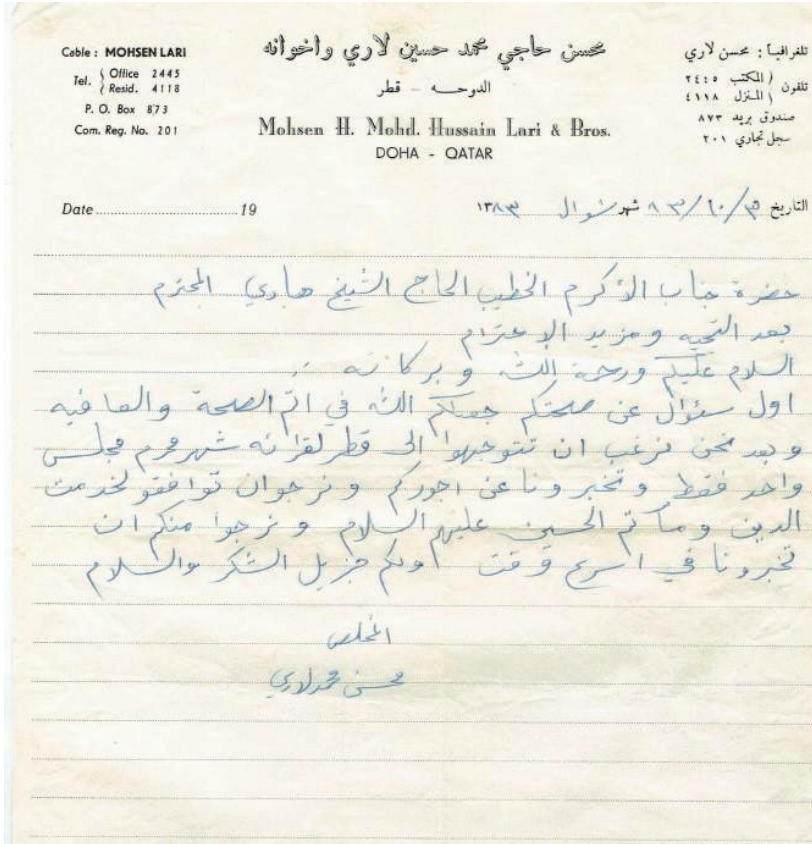 Cable : MOHSEN LARI
Tel. ( Office 2445
( Resid. 4118
P. O. Box 873
Com. Reg. No. 201
محسن حاجي محمد حسين لاري واخوانه
الدوحه - قطر
Mohsen H. Mohd. Hussain Lari & Bros.
DOHA - QATAR
تلغرافياً : محسن لاري
تلفون ( المكتب ٢٤٤٥
( المنزل ٤١١٨
صندوق بريد ٨٧٣
سجل تجاري ٢٠١
Date ........................... 19
التاريخ ٨٣/١٠/ شهر شوال ١٣٨٣
حضرة جناب الأكرم الخطيب الحاج الشيخ هادي المحترم
بعد التحيه ومزيد الإحترام
السلام عليكم ورحمة الله وبركاته
اول سئوال عن صحتكم جعلكم الله في اتم الصحة والعافيه
وبعد نحن نرغب ان تتوجهوا الى قطر لقرائه شهر محرم مجلس
واحد فقط وتخبرونا عن اجوركم ونرجوان توافقو لخدمت
الدين ومأتم الحسين عليهم السلام ونرجوا منكم ان
تخبرونا في اسرع وقت ولكم جزيل الشكر والسلام
المخلص
محسن محمد لاري